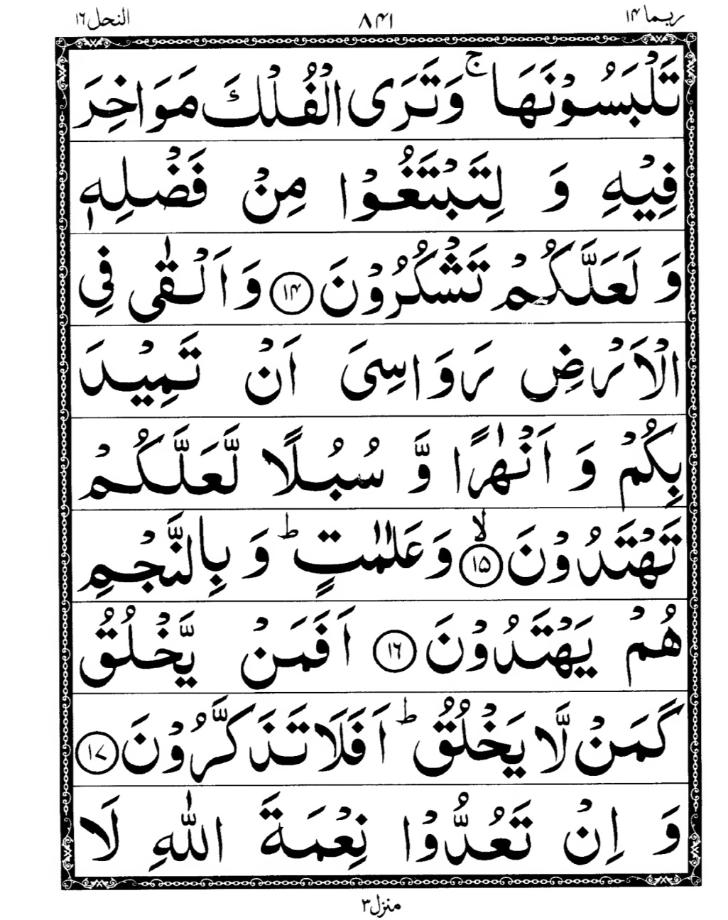 ربما ۱۴ ۸۴۱ النحل ۱۶
تَلْبَسُوْنَهَا ۚ وَتَرَى الْفُلْكَ مَوَاخِرَ
فِيْهِ وَ لِتَبْتَغُوْا مِنْ فَضْلِهٖ
وَ لَعَلَّكُمْ تَشْكُرُوْنَ ﴿۱۴﴾ وَاَلْقٰى فِى
الْاَرْضِ رَوَاسِىَ اَنْ تَمِيْدَ
بِكُمْ وَ اَنْهٰرًا وَّ سُبُلًا لَّعَلَّكُمْ
تَهْتَدُوْنَ ﴿۱۵﴾ ۙ وَعَلٰمٰتٍ ؕ وَ بِالنَّجْمِ
هُمْ يَهْتَدُوْنَ ﴿۱۶﴾ اَفَمَنْ يَّخْلُقُ
كَمَنْ لَّا يَخْلُقُ ؕ اَفَلَا تَذَكَّرُوْنَ ﴿۱۷﴾
وَ اِنْ تَعُدُّوْا نِعْمَةَ اللّٰهِ لَا
منزل ۳